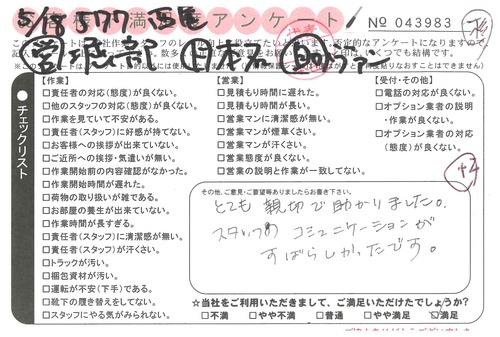 満 アンケート
№ 043983
チェックリスト
【作業】
□責任者の対応(態度)が良くない。
□他のスタッフの対応(態度)が良くない。
□作業を見ていて不安がある。
□責任者(スタッフ)に好感が持てない。
□お客様への挨拶が出来ていない。
□ご近所への挨拶・気遣いが無い。
□作業開始前の内容確認がなかった。
□作業開始時間が遅れた。
□荷物の取り扱いが雑である。
□お部屋の養生が出来ていない。
□作業時間が長すぎる。
□責任者(スタッフ)に清潔感が無い。
□責任者(スタッフ)が汗くさい。
□トラックが汚い。
□梱包資材が汚い。
□運転が不安(下手)である。
□靴下の履き替えをしてない。
□スタッフにやる気がみられない。
【営業】
□見積もり時間に遅れた。
□見積もり時間が長い。
□営業マンに清潔感が無い。
□営業マンが煙草くさい。
□営業マンが汗くさい。
□営業態度が良くない。
□営業の説明と作業が一致してない。
【受付・その他】
□電話の対応が良くない。
□オプション業者の説明
・作業が良くない。
□オプション業者の対応
(態度)が良くない。
その他、ご意見・ご要望等ありましたらお書き下さい。
とても親切で助かりました。
スタッフの コミュニケーションが
すばらしかったです。
☆当社をご利用いただきまして、ご満足いただけたでしょうか?
□不満 □やや不満 □普通 □やや満足 □満足